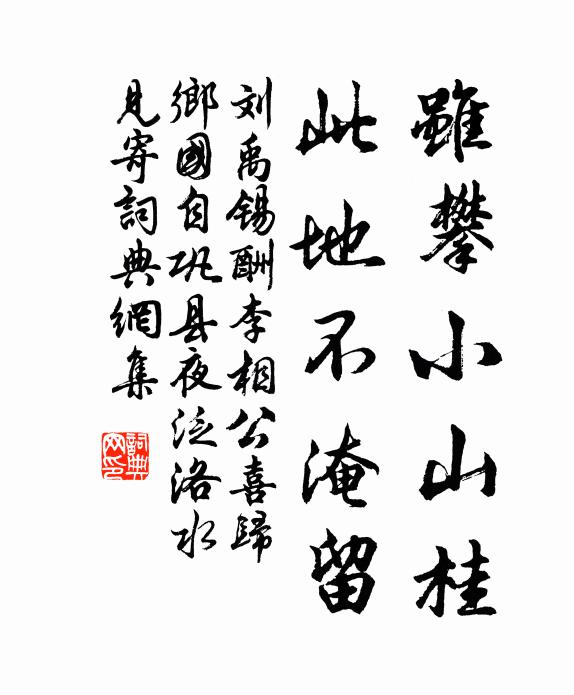 雖攀小山桂
此地不淹留
刘禹锡酬李相公喜歸
鄉國自巩县夜泛洛水
見寄詞典網集
詞典
网印